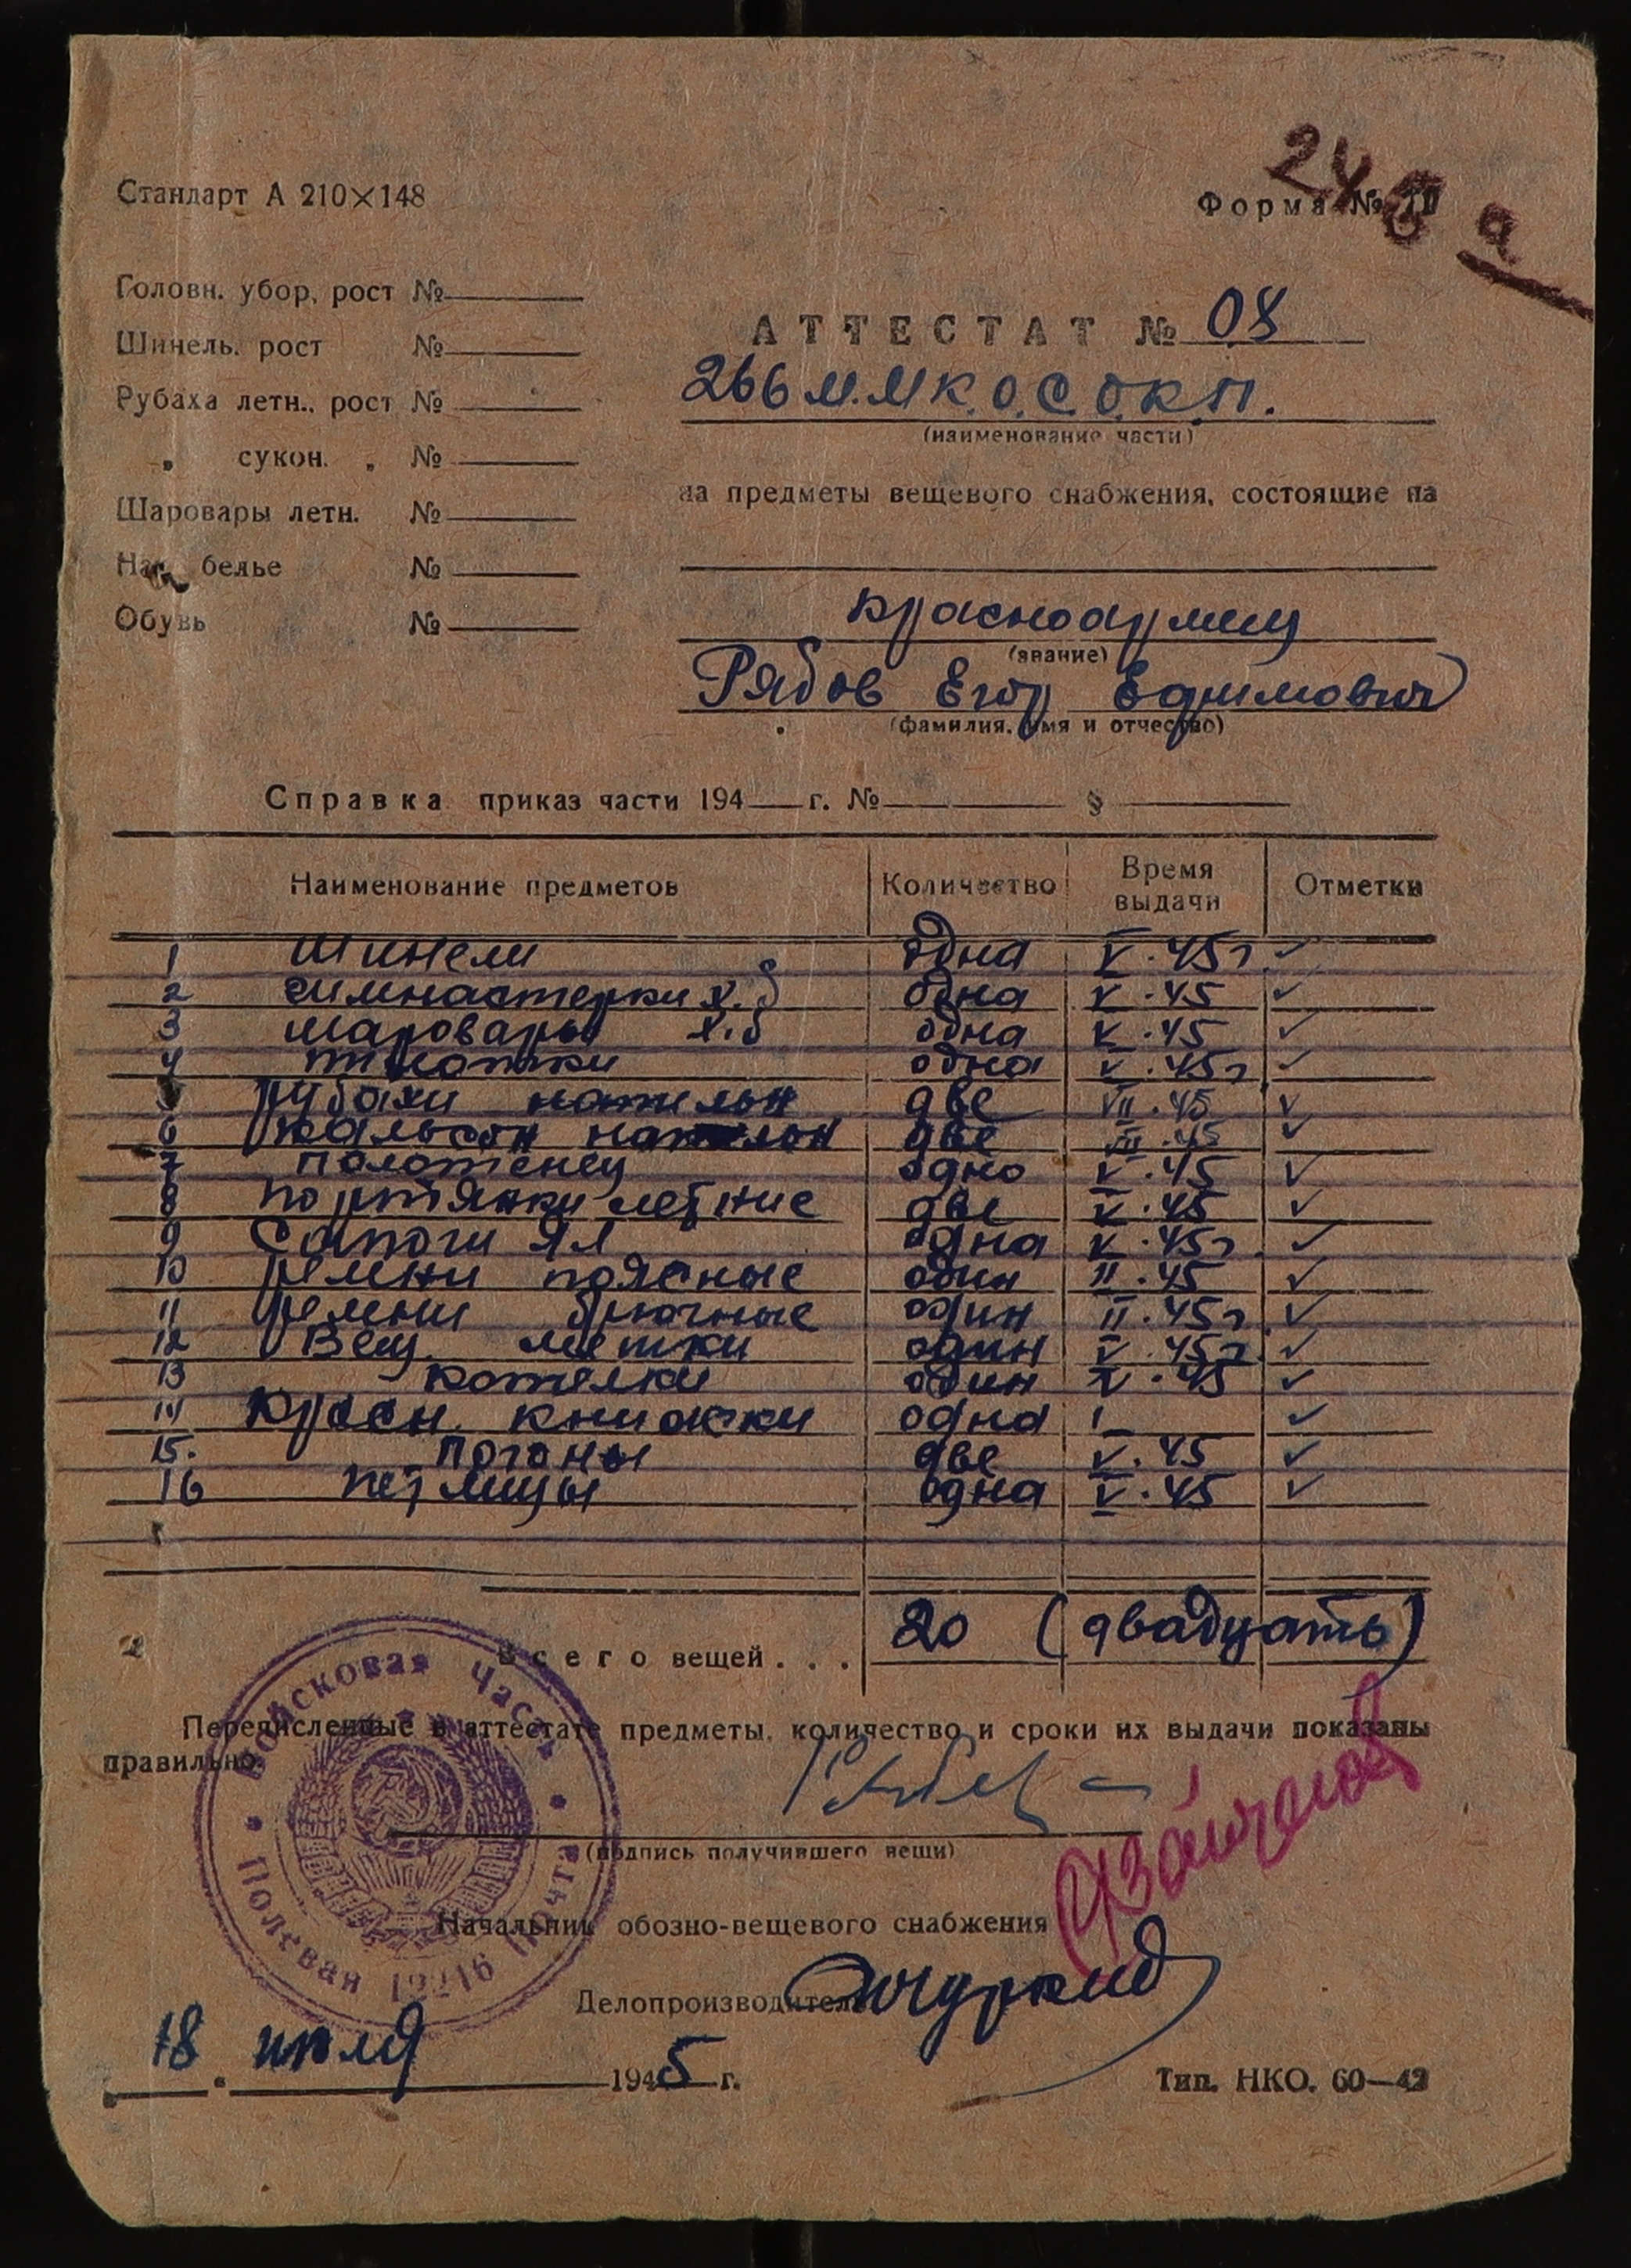 248 а
Стандарт А 210×148
Форма №
Головн. убор, рост №
Шинель. рост №
Рубаха летн., рост №
„ сукон. „ №
Шаровары летн. №
белье №
Обувь №
АТТЕСТАТ № 08
266 М.М К.О.С.О.К.П.
(наименование части)
на предметы вещевого снабжения, состоящие на
красноармеец
(звание)
Рябов Егор Ефимович
(фамилия, имя и отчество)
Справка приказ части 194 г. № §
Наименование предметов Количество Время выдачи Отметки
1 Шинели одна V. 45 г. ✓
2 гимнастерки х.б одна V. 45 ✓
3 шаровары х.б одна V. 45 ✓
4 пилотки одна V. 45 г ✓
5 рубахи нательн две VII. 45 ✓
6 кальсон нательн две VII. 45 ✓
7 полотенец одно V. 45 ✓
8 портянки летние две V. 45 ✓
9 Сапоги ял одна V. 45 г. ✓
10 ремни поясные один II. 45 ✓
11 ремни брючные один II. 45 г. ✓
12 Вещ. мешки один V. 45 г. ✓
13 котелки один V. 45 ✓
14 Красн. книжки одна ✓
15. погоны две V. 45 ✓
16 петлицы одна V. 45 ✓
Всего вещей . . . 20 (двадцать)
Перечисленные в аттестате предметы, количество и сроки их выдачи показаны
правильно.
(подпись получившего вещи)
Начальник обозно-вещевого снабжения
Делопроизводитель
Войсковая часть
Полевая почта 12216
18 июля 1945 г.
Тип. НКО. 60—42